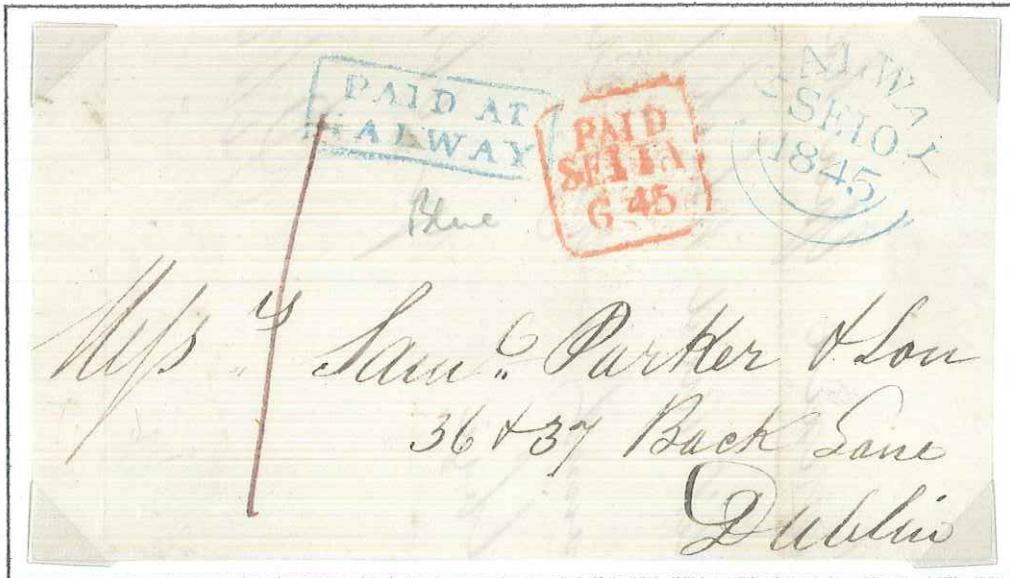 PAID AT
GALWAY
PAID
SE11A
G 45
GALWAY
SE10
1845
Blue
1
Messrs Saml. Parker & Son
36 & 37 Back Lane
Dublin